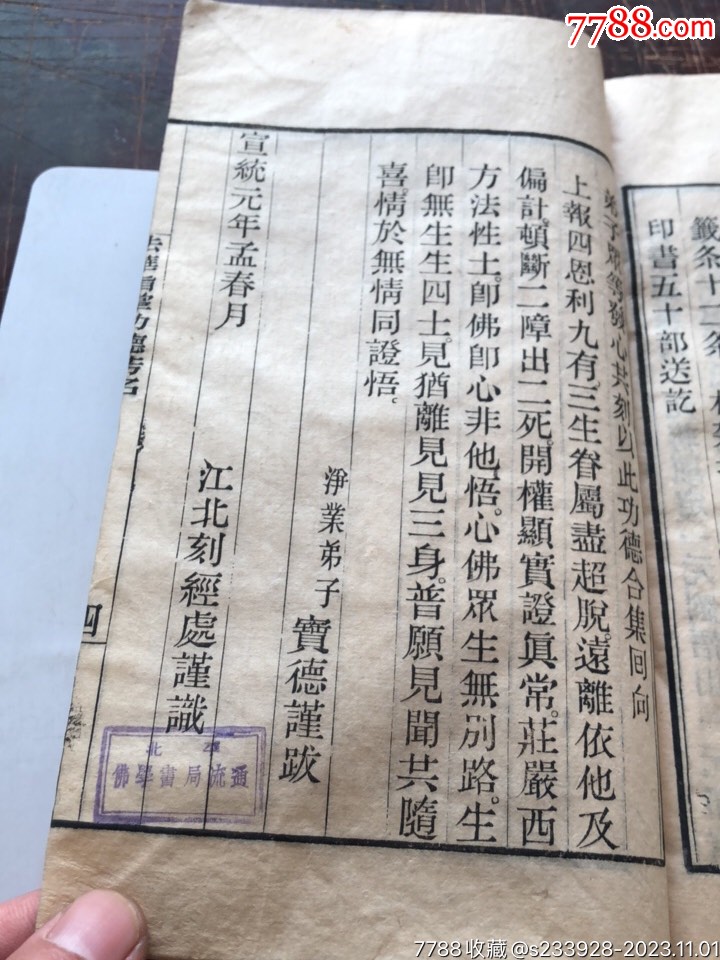 籤条十二条
印書五十部送訖
弟子眾等發心共刻以此功德合集回向
上報四恩利九有。三生眷屬盡超脫。遠離依他及
偏計。頓斷二障出二死。開權顯實證眞常。莊嚴西
方法性土。卽佛卽心非他悟。心佛眾生無別路。生
卽無生生四士。見猶離見見三身。普願見聞共隨
喜。情於無情同證悟。
淨業弟子 寶德謹跋
宣統元年孟春月 江北刻經處謹識
四
北平
佛學書局流通
7788.com
7788收藏@s233928-2023.11.01